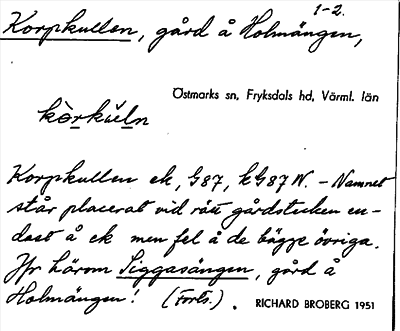 1-2.
Korpkullen, gård å Holmängen,
Östmarks sn, Fryksdals hd, Värml. län
kòrkùln
Korpkullen ek, G87, kG87 N. – Namnet
står placerat vid rätt gårdstecken en-
dast å ek men fel å de bägge övriga.
Jfr härom Siggasängen, gård å
Holmängen! (Forts.). RICHARD BROBERG 1951